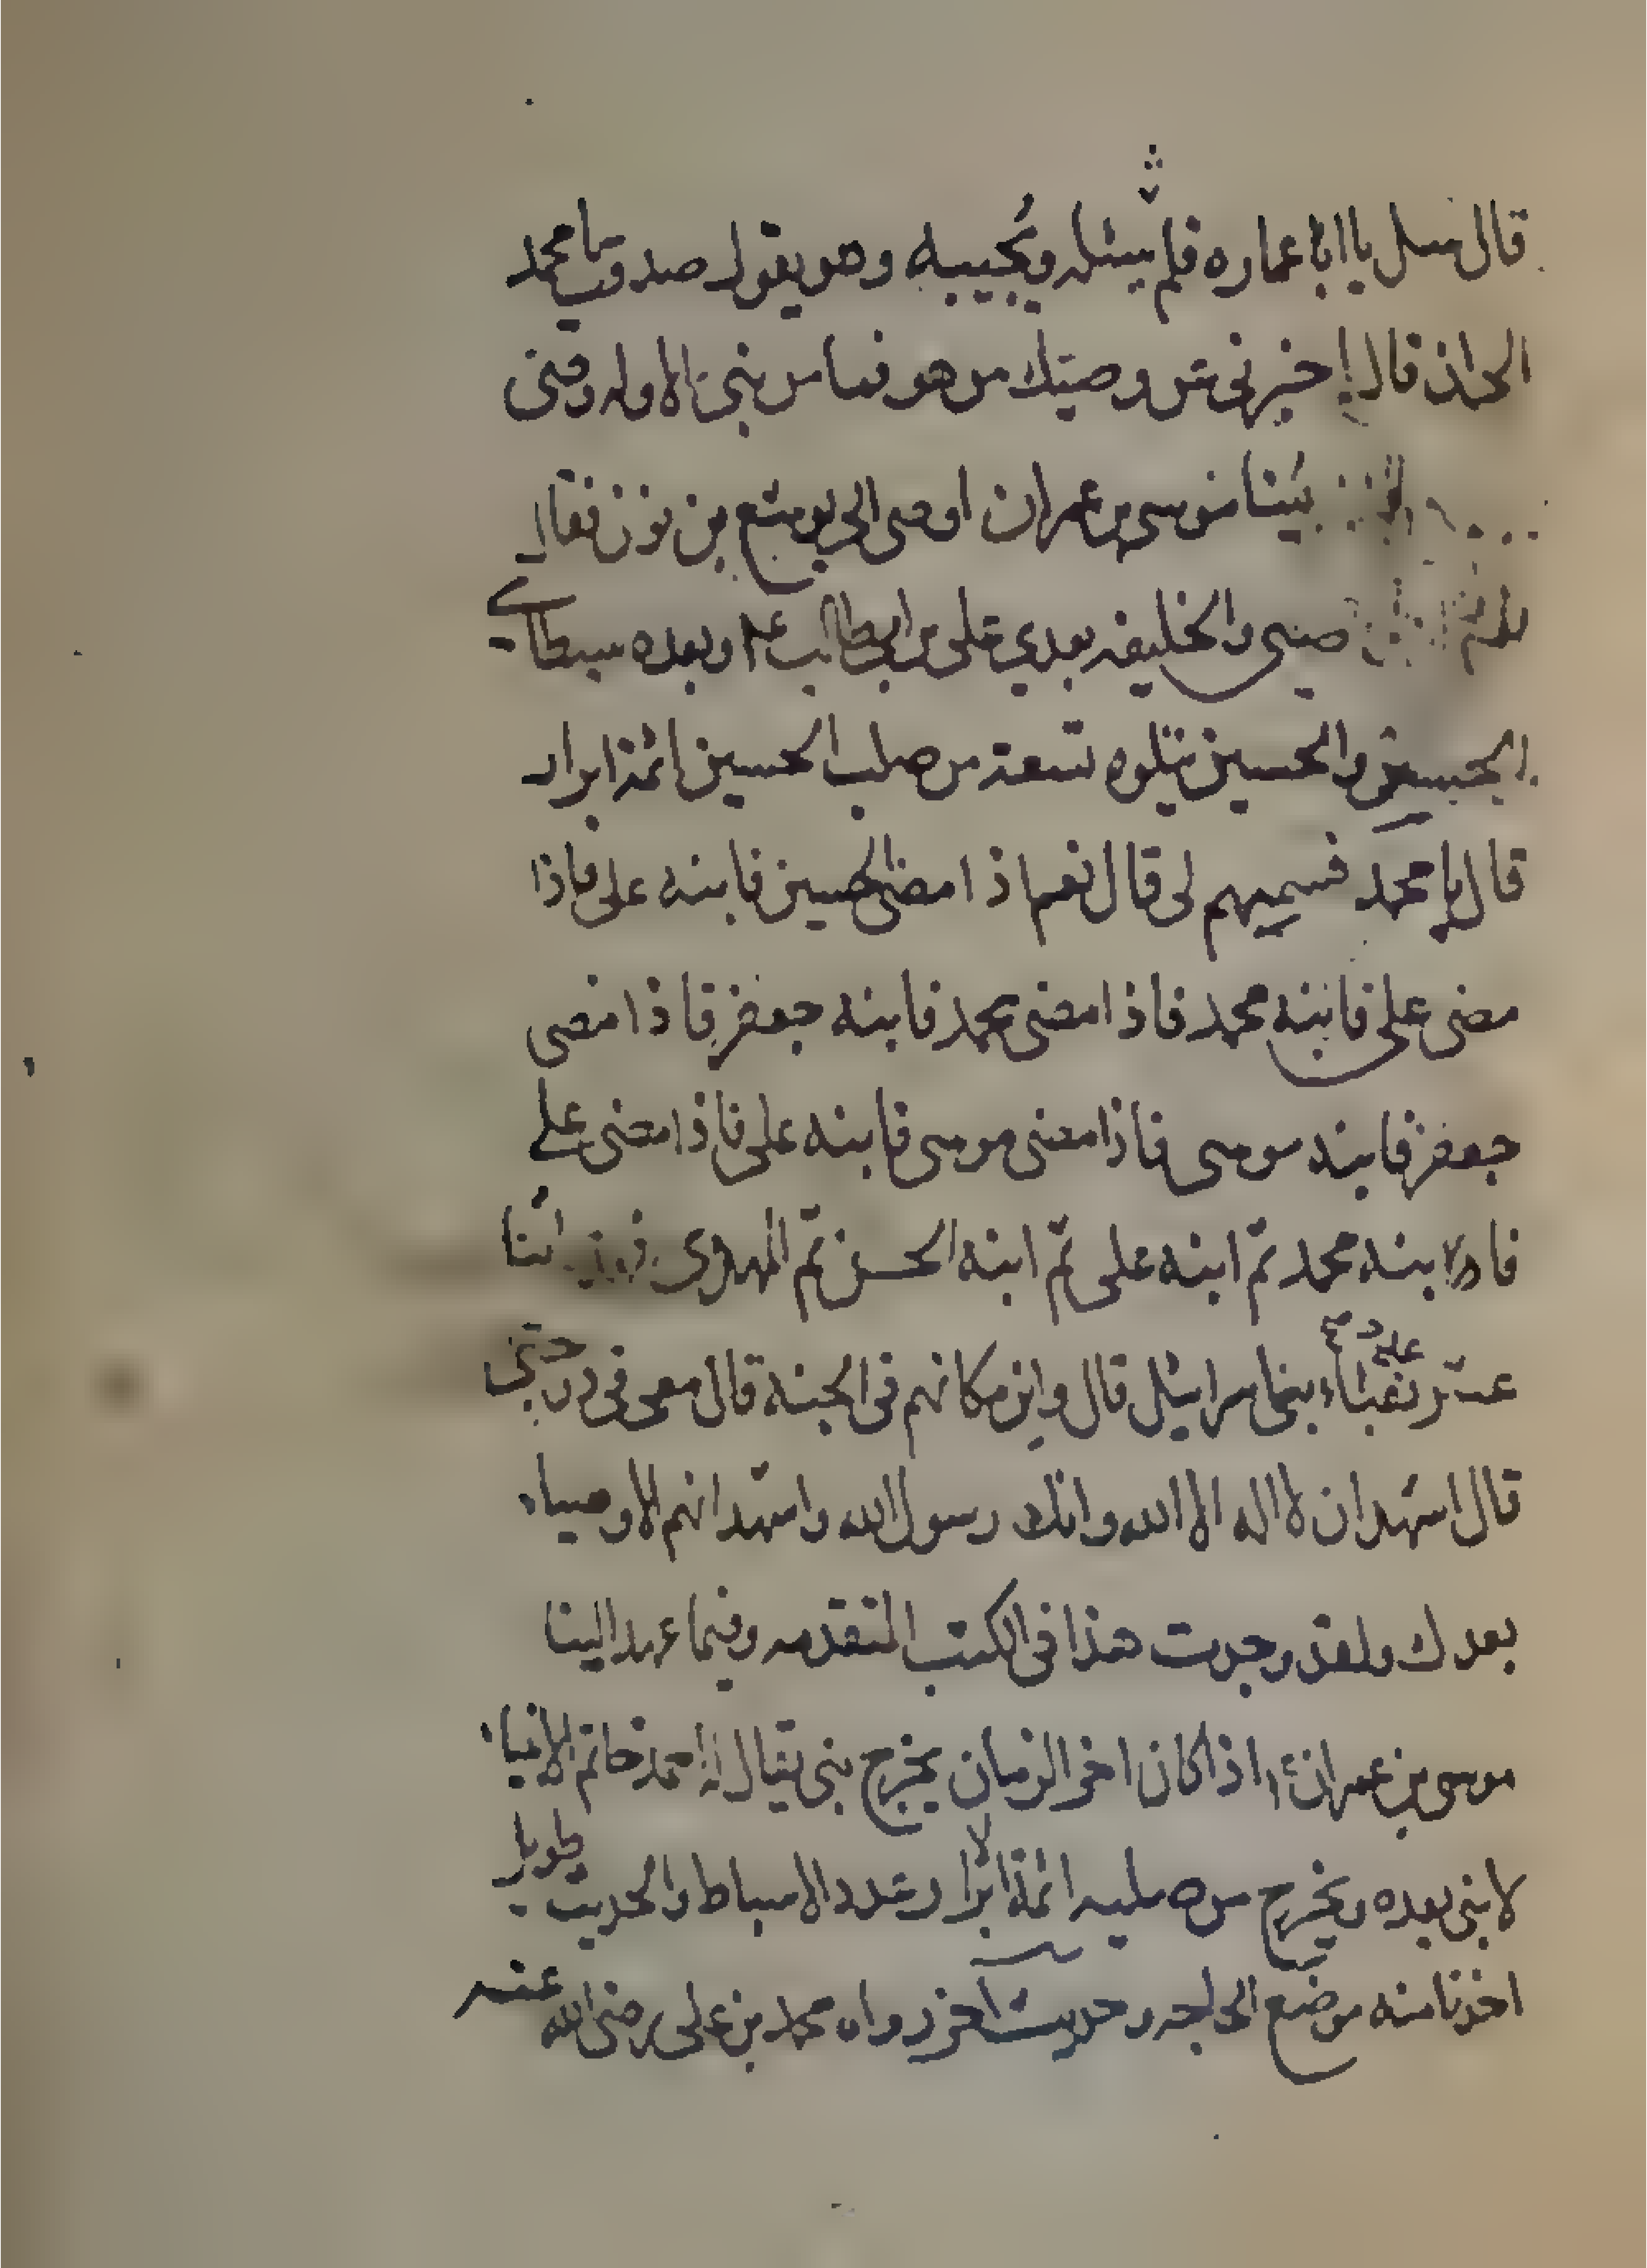 قال سل يا ابا عماره فلم يسئله ويجيبه وهو يقول صدقت يا محمد
الى ان قال اخبرنى عن وصيّك من هو فما من نبى الا وله وصى
نبينا موسى بن عمران اوصى الى يوشع بن نون فقال
وصيى والخليفه بعدي على بن ابيطالب ع م وبعده سبطاي
الحسن والحسين يتلوه تسعة من صلب الحسين ائمة ابرار
قال يا محمد فسميهم لى قال نعم اذا مضى الحسين فابنه على فاذا
مضى على فابنه محمد فاذا مضى محمد فابنه جعفر فاذا مضى
جعفر فابنه موسى فاذا مضى موسى فابنه على فاذا مضى على
فابنه محمد ثم ابنه على ثم ابنه الحسن ثم المهدى اثنا
عشر على عدد نقباء بنى اسرائيل قال واين مكانهم فى الجنة قال معى فى درجتى
قال اشهد ان لا اله الا الله وانك رسول الله واشهد انهم الاوصياء
بعدك ولقد وجدت هذا فى الكتب المتقدمه وفيما عهد الينا
موسى بن عمران ع م اذا كان اخر الزمان يخرج نبى يقال له احمد خاتم الانبياء
لا نبى بعده ويخرج من صلبه ائمة ابرار عدد الاسباط والحديث طويل
اخذنا منه موضع الحاجه وحديث اخر رواه محمد بن على رضى الله عنه